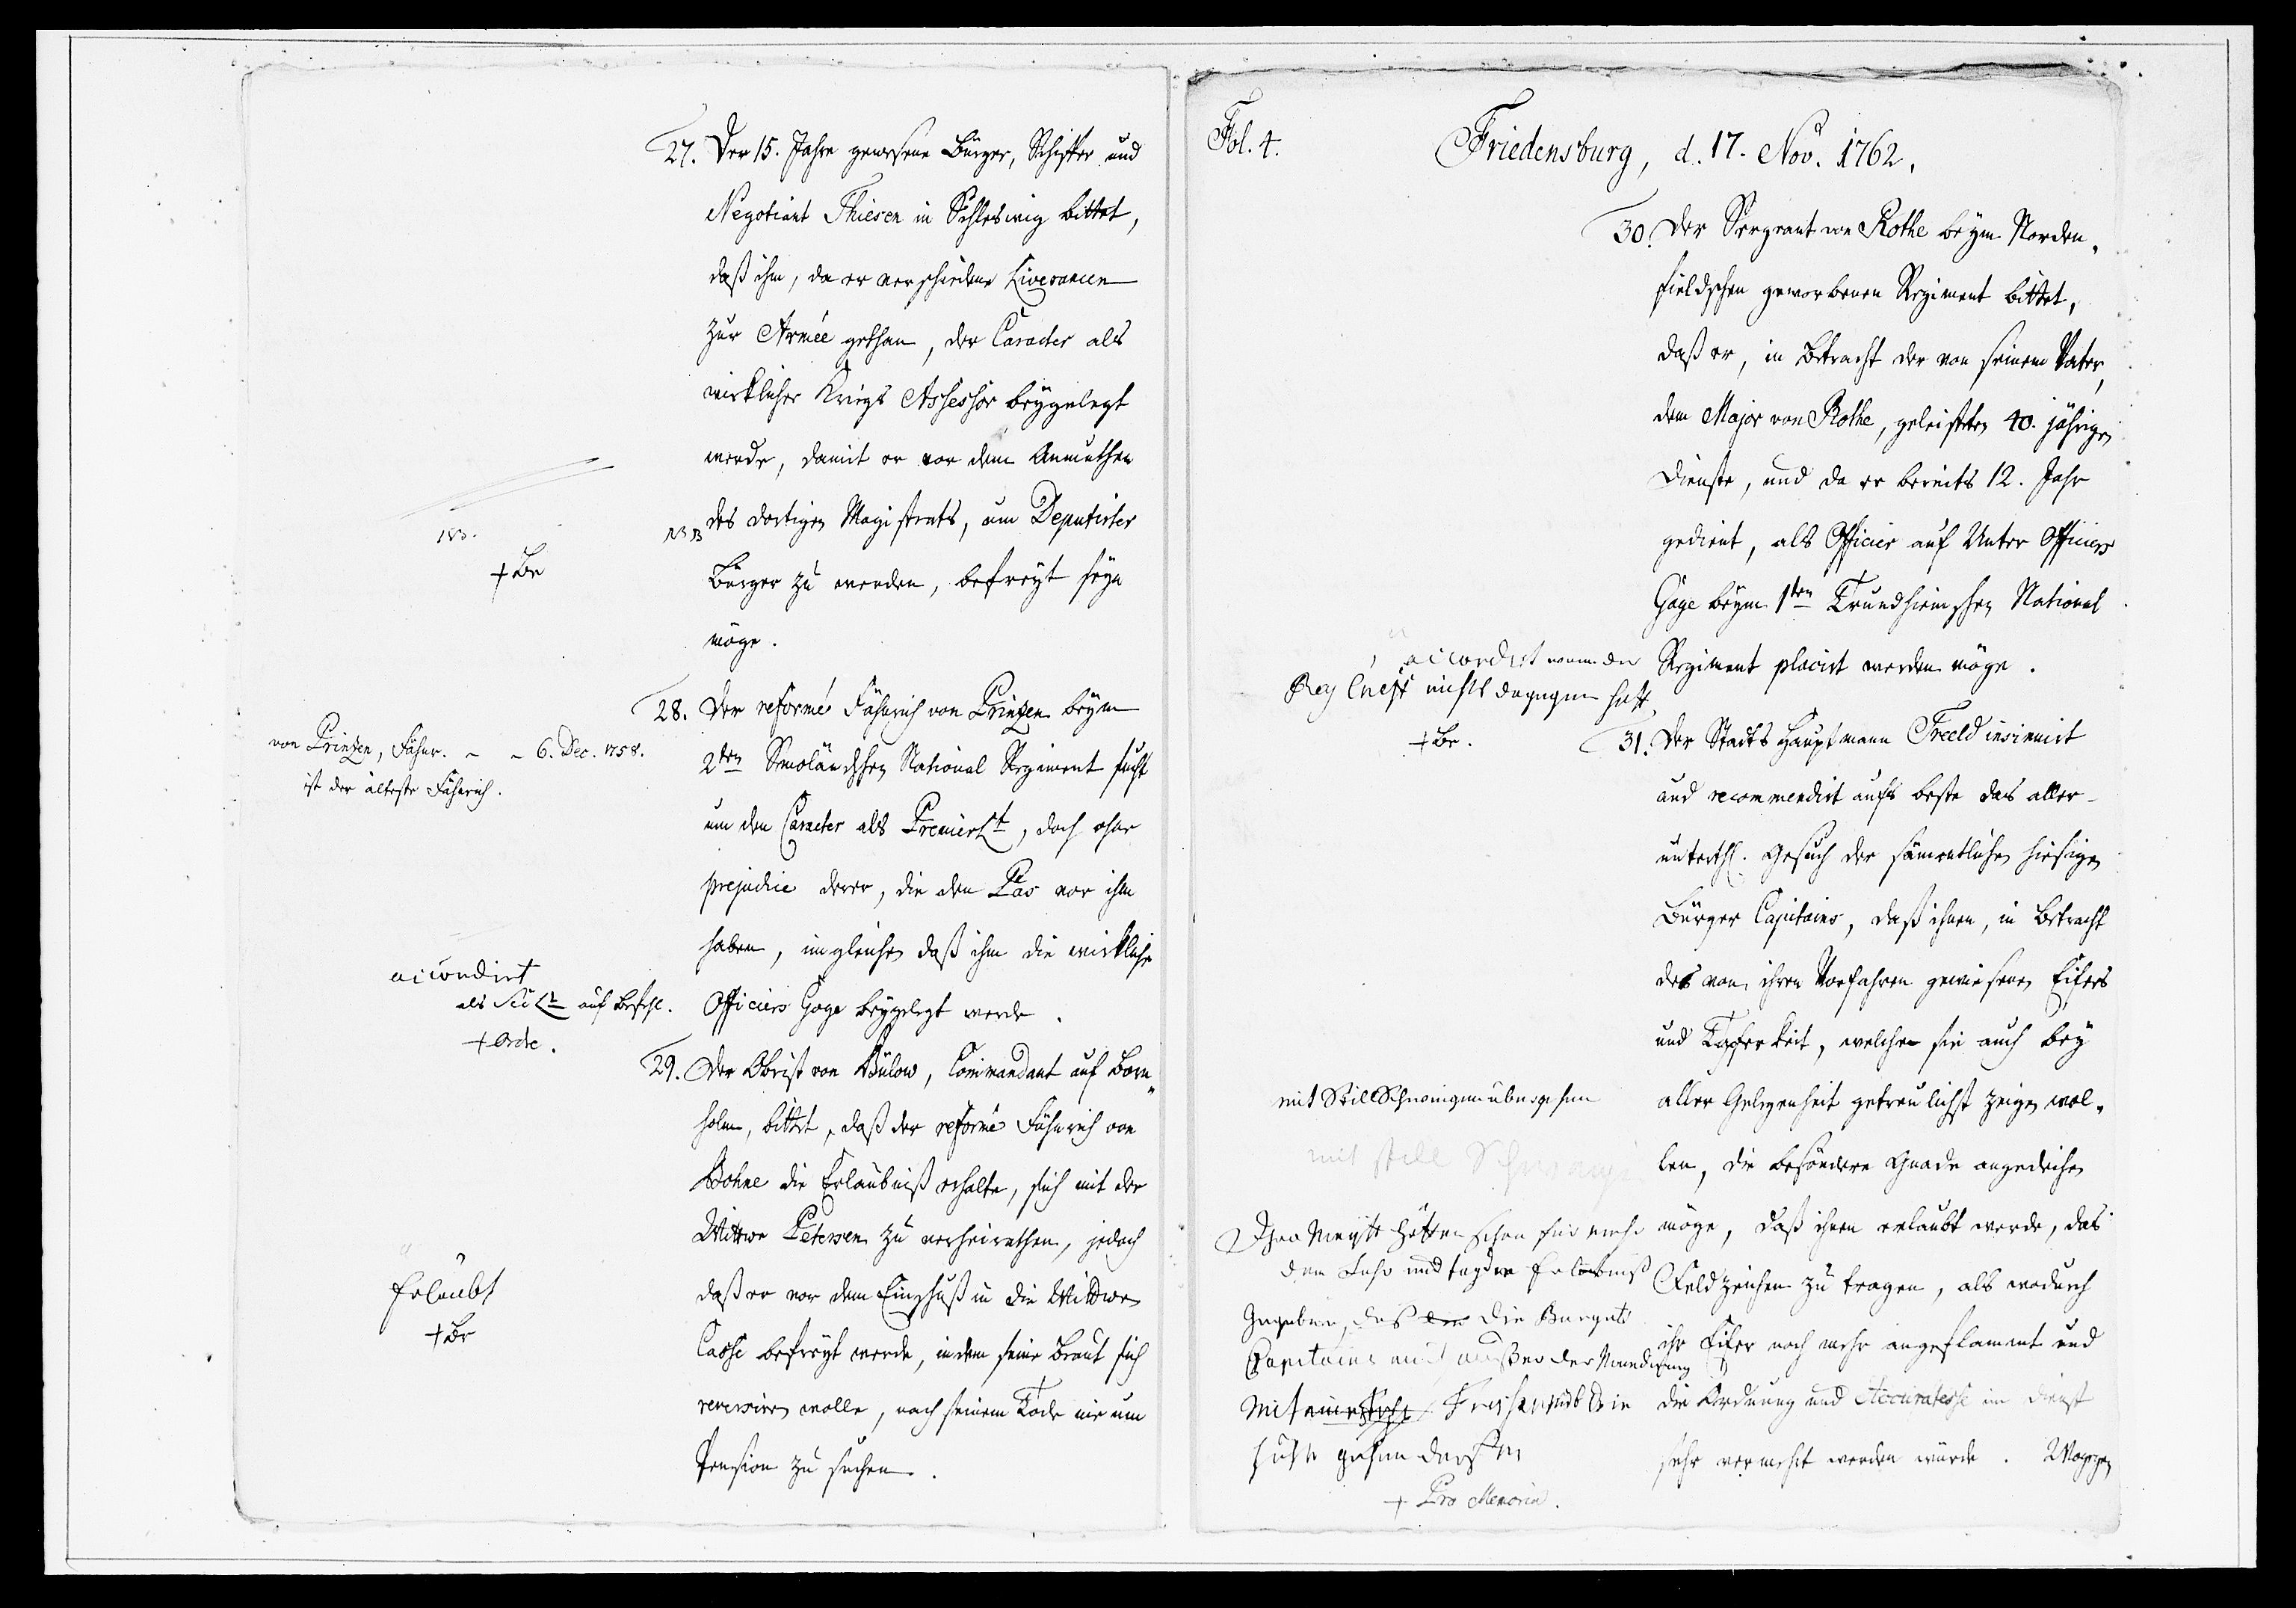 27. Der 15. Jahre gewesene Bürger, Schiffer und
Negotiant Thiesen in Schleswig bittet,
daß ihm, da er verschiedene Liverancen
zur Armée gethan, der Caracter als
wirklicher Kriegs Assessor beygelegt
werde, damit er vor dem Anmuthen
des dortigen Magistrats, um Deputirter
Bürger zu werden, befreyt seyn
möge.
NB
+ Br
28. Der reformé Fähnrich von Prinzen beym
2ten Smoländschen National Regiment sucht
um den Caracter als PremierLt, doch ohne
prejudice derer, die den Pas vor ihm
haben, imgleichen daß ihm die wirkliche
Officiers Gage beygelegt werde.
von Prinzen, Fähnr. - - 6. Dec. 1758.
ist der älteste Fähnrich.
accordirt
als Sec Lt auf Befehl.
+ Ordre.
29. Der Obrist von Bülow, Commandant auf Born„
holm, bittet, daß der reformé Fähnrich von
Bohne die Erlaubniß erhalte, sich mit der
Wittwe Petersen zu verheirathen, jedoch
daß er vor dem Einschuß in die Wittwen
Casse befreyt werde, indem seine Braut sich
reversiren wolle, nach seinem Tode nie um
Pension zu suchen.
Erlaubt
+ Br
Fol. 4.
Friedensburg, d. 17. Nov. 1762.
30. Der Sergeant von Rothe beym Norden„
fieldschen geworbenen Regiment bittet,
daß er, in Betracht der von seinem Vater,
dem Major von Rothe, geleisteten 40. jährigen
Dienste, und da er bereits 12. Jahr
gedient, als Officier auf Unter Officiers
Gage beym 1sten Trundhiemschen National
Regiment placirt werden möge.
accordirt wenn der
Reg Chef nichts dagegen hatt
+ Br.
31. Der Stadts Hauptmann Freeld insinuirt
und recommendirt aufs beste das aller-
unterthl. Gesuch der sämmtlichen hiesigen
Bürger Capitains, daß ihnen, in Betracht
des von ihren Vorfahren gewiesenen Eifers
und Tapferkeit, welchen sie auch bey
aller Gelegenheit getreulichst zeigen wol„
len, die besondere Gnade angedeihen
möge, daß ihnen erlaubt werde, das
Feldzeichen zu tragen, als wodurch
ihr Eifer noch mehr angeflammt und
die Ordnung und Accuratesse im Dienst
sehr vermehrt werden würde. Wogegen
mit StillSchweigen übergehen
mit still Schweigen
Ihro Maytt hätten schon
dem Erlaubniß
Gegeben, das die Burger
Capitains auch außer der Mundirung
mit
gehen dürften
+ Pro Memoria.